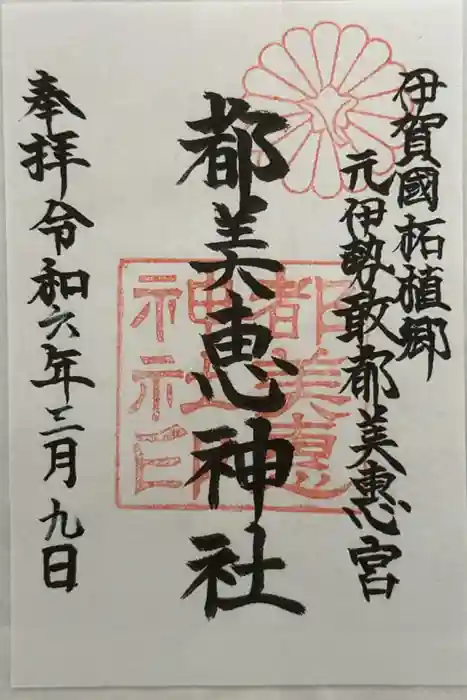 伊賀國柘植郷
元伊勢敢都美恵宮
都美恵神社
奉拝令和六年三月九日
都美恵
神社印